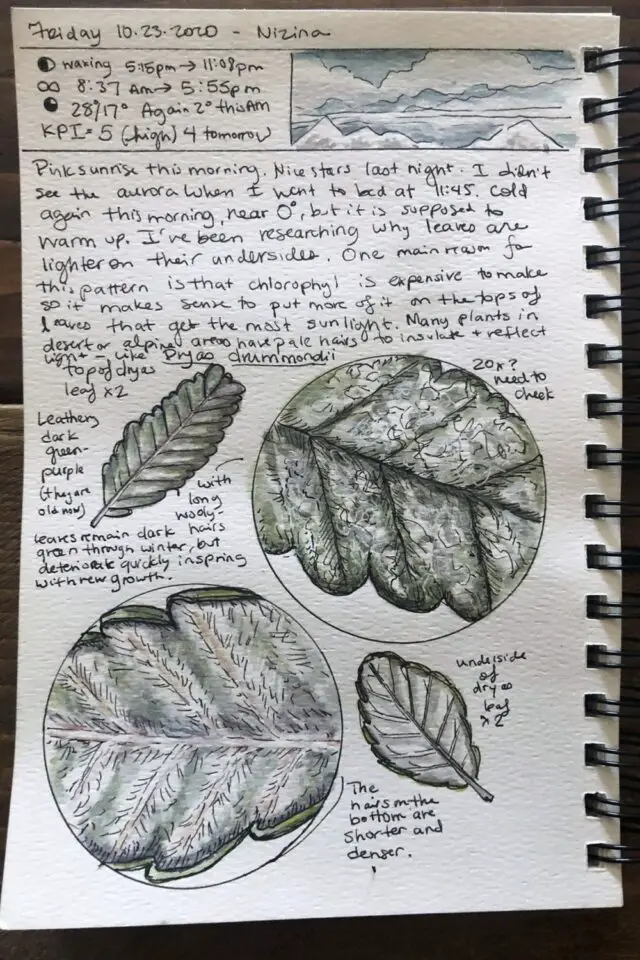 Friday 10.23.2020 - Nizina
waxing 5:15pm → 11:08pm
8:37 Am → 5:55pm
28°/17° Again 2° this AM
KPI = 5 (high) 4 tomorrow
Pink sunrise this morning. Nice stars last night. I didn't
see the aurora when I went to bed at 11:45. Cold
again this morning, near 0°, but it is supposed to
warm up. I've been researching why leaves are
lighter on their undersides. One main reason for
this pattern is that chlorophyl is expensive to make
so it makes sense to put more of it on the tops of
leaves that get the most sunlight. Many plants in
desert or alpine areas have pale hairs to insulate + reflect
light - like Dryas drummondii
top of dryas
leaf x2
20x?
need to
check
Leathery
dark
green-
purple
(they are
old now)
with
long
wooly-
hairs
leaves remain dark
green through winter, but
deteriorate quickly in spring
with new growth.
underside
of
dryas
leaf
x2
The
hairs on the
bottom are
shorter and
denser.